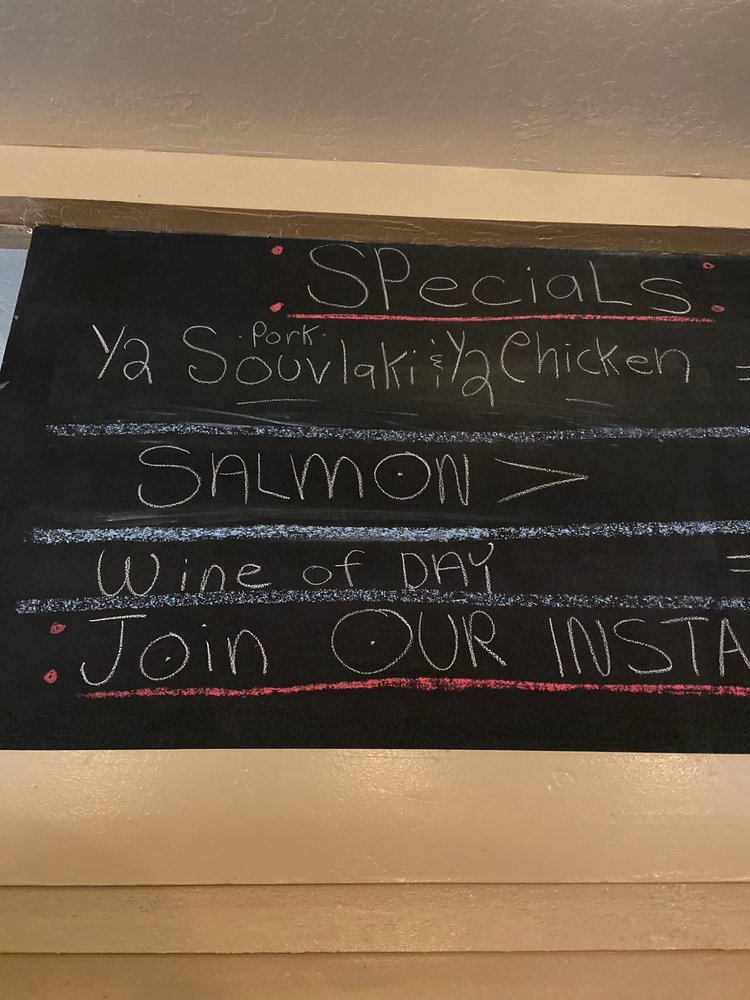 SPeciaLs
·Pork·
Y2 Souvlaki & Y2 Chicken =
SALMON >
Wine of DAY =
Join OUR INSTA